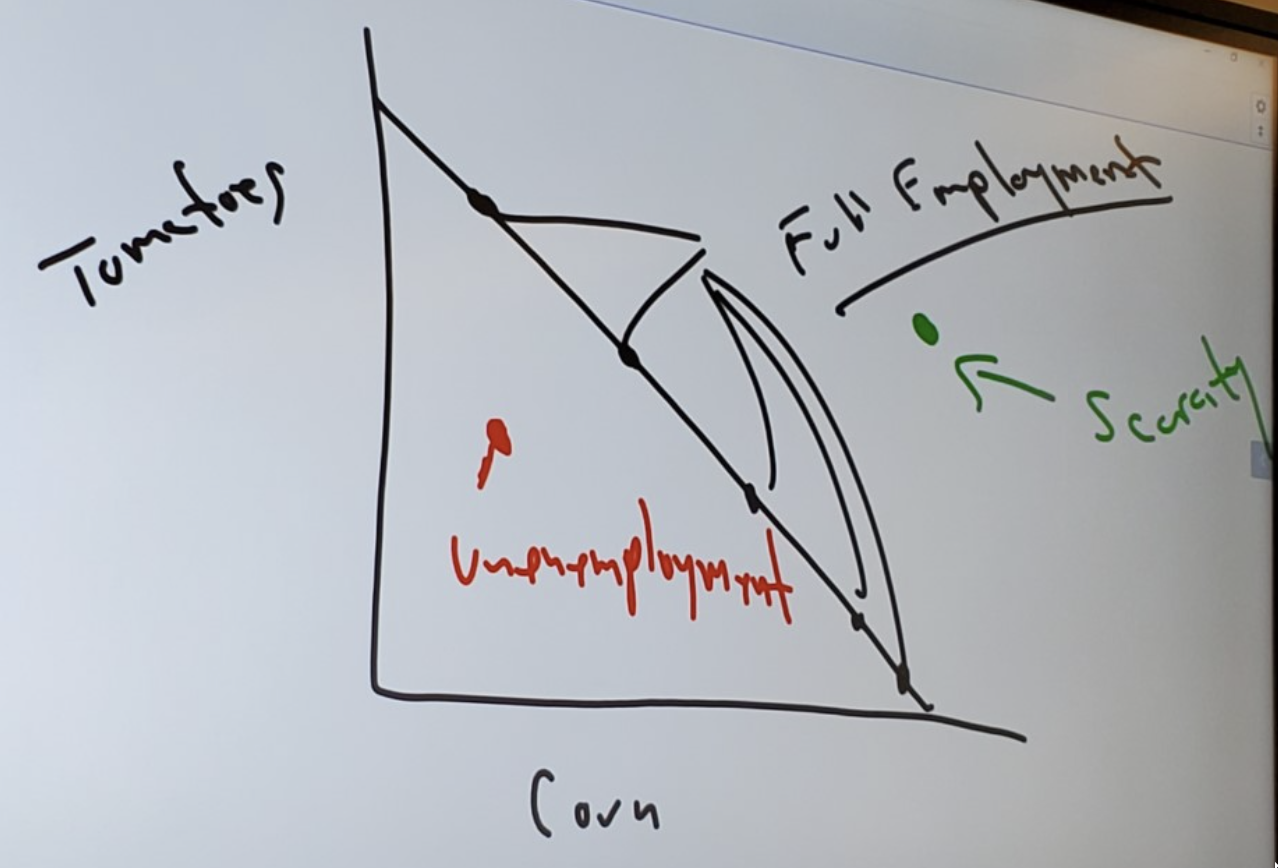 Tomatoes
Full Employment
Scarcity
Unenemployment
Corn